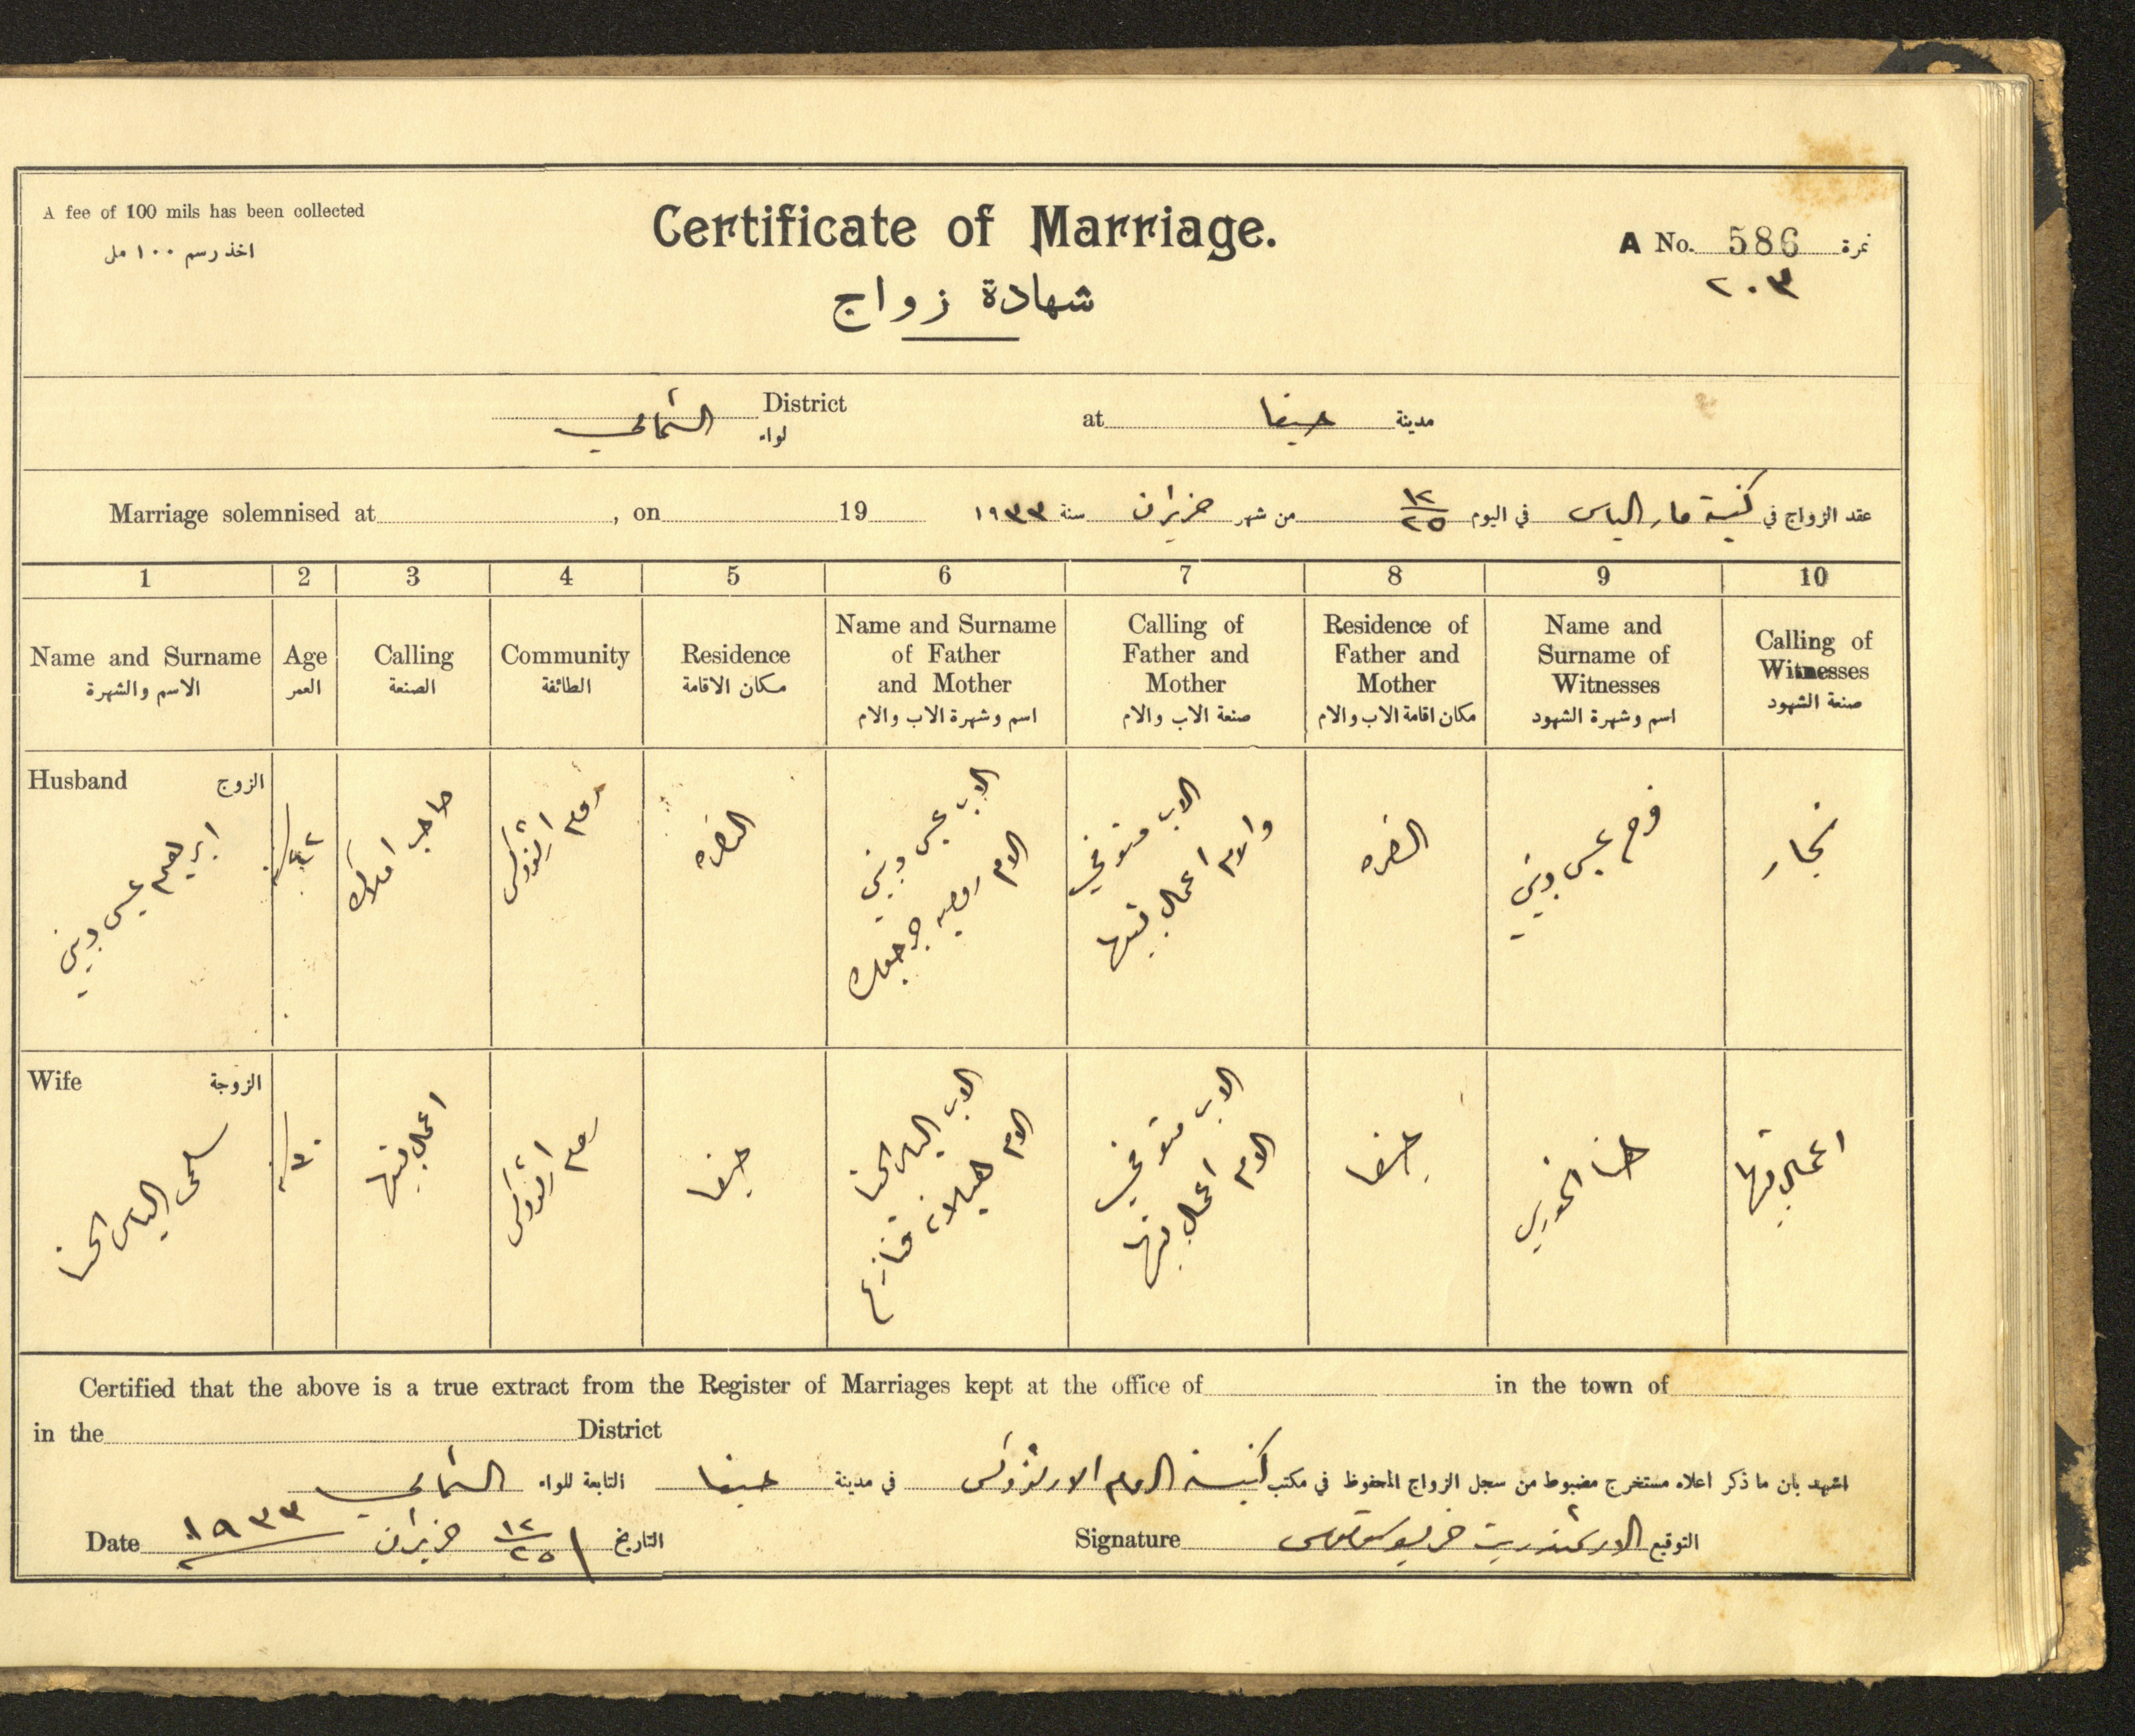 A fee of 100 mils has been collected
اخذ رسم ١٠٠ مل
Certificate of Marriage.
شهادة زواج
A No. 586 نمرة
٢٠٣
District الشمالي لواء
at حيفا مدينة
Marriage solemnised at , on 19
عقد الزواج في كنيسة مار الياس في اليوم ١٢/٢٥ من شهر حزيران سنة ١٩٣٣
1 2 3 4 5 6 7 8 9 10
Name and Surname
الاسم والشهرة
Age
العمر
Calling
الصنعة
Community
الطائفة
Residence
مكان الاقامة
Name and Surname
of Father
and Mother
اسم وشهرة الاب والام
Calling of
Father and
Mother
صنعة الاب والام
Residence of
Father and
Mother
مكان اقامة الاب والام
Name and
Surname of
Witnesses
اسم وشهرة الشهود
Calling of
Witnesses
صنعة الشهود
Husband الزوج
ابرهيم عيسى
صاحب املاك
روم ارثوذكس
الناصره
الاب عيسى
الام
الاب متوفي
والام اعمال بيتها
الناصره
فرح عيسى
نجار
Wife الزوجة
سلمى الياس الحنا
٣٠
اعمال بيتها
روم ارثوذكس
حيفا
الاب الياس الحنا
الام هيلانه
الاب متوفي
الام اعمال بيتها
حيفا
حنا الخوري
اعمال بيتها
Certified that the above is a true extract from the Register of Marriages kept at the office of in the town of
in the District
اشهد بان ما ذكر اعلاه مستخرج مضبوط من سجل الزواج المحفوظ في مكتب كنيسة الروم الارثوذكس في مدينة حيفا التابعة للواء الشمالي
Date ١٩٣٣ حزيران ١٢/٢٥ التاريخ
Signature الارشمندريت التوقيع